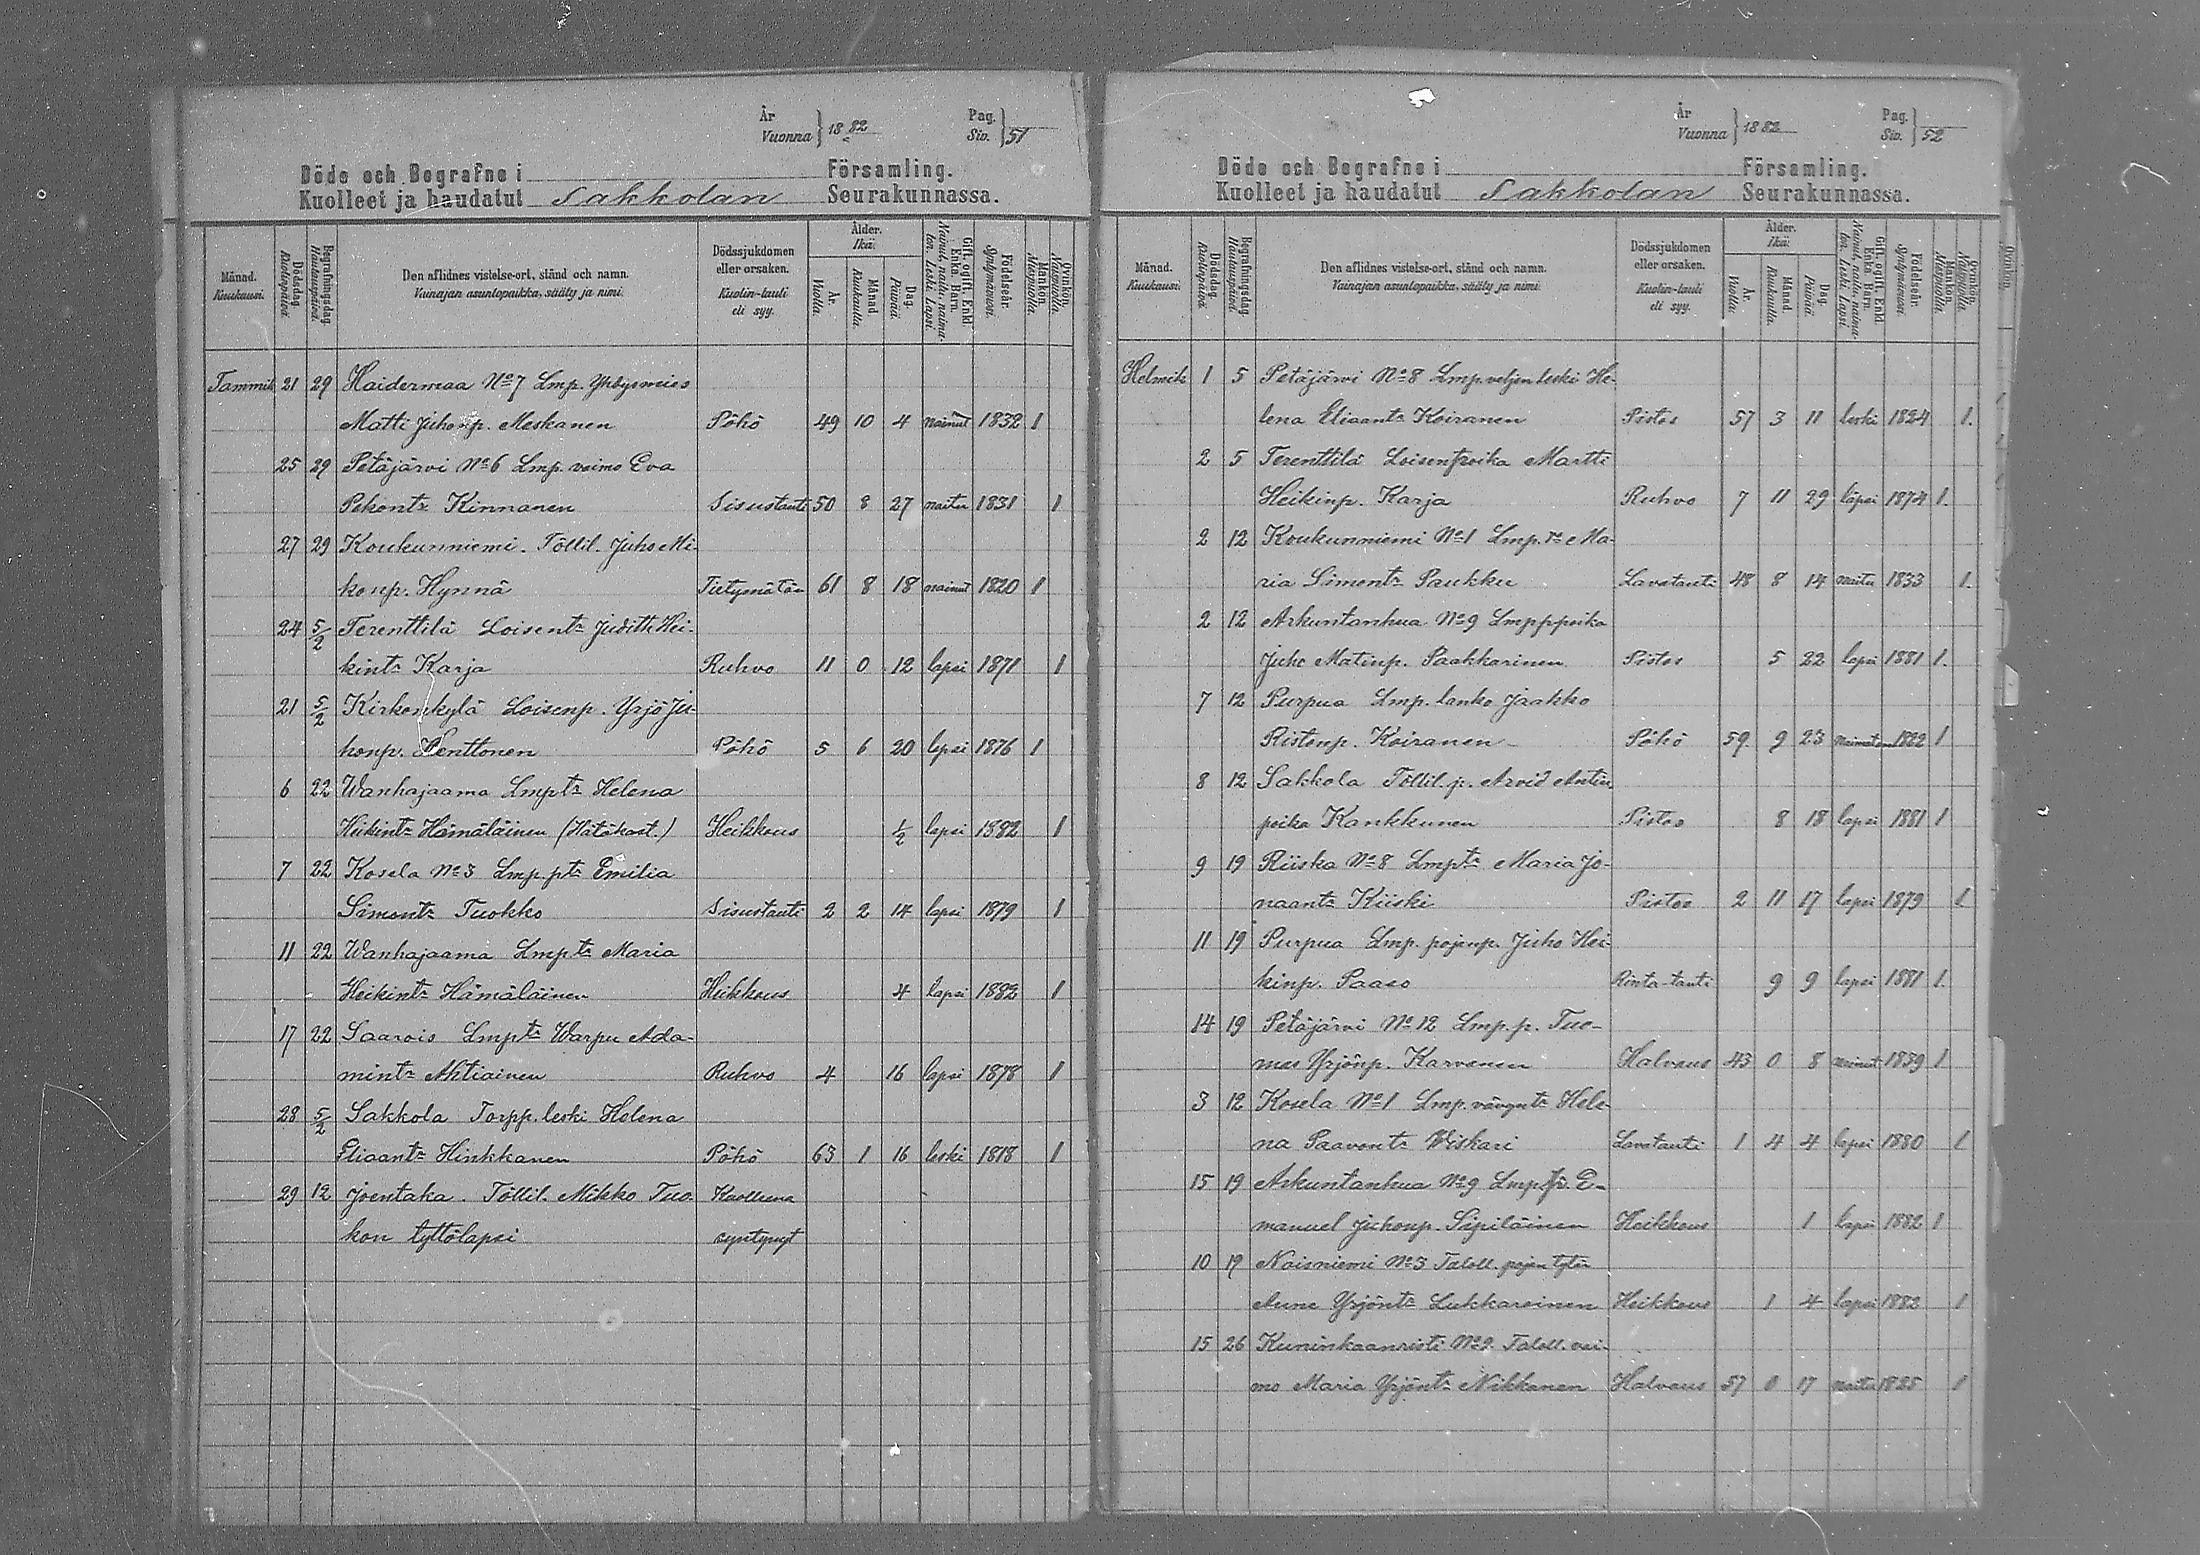 År Vuonna } 1882 Pag. Siv. } 51
Döde och Begrafne i Församling.
Kuolleet ja haudatut Sakkolan Seurakunnassa.
Månad. Kuukausi. Dödsdag. Kuolinpäivä. Begrafningsdag. Hautauspäivä. Den aflidnes vistelse-ort, stånd och namn. Vainajan asuntopaikka, sääty ja nimi. Dödssjukdomen eller orsaken. Kuolin-tauti eli syy. Ålder. Ikä: År. Vuotta. Månad Kuukautta. Dag. Päivää. Gift, ogift, Enkl. Enka, Barn. Nainut, naitu, naimaton, Leski, Lapsi. Födelseår. Syntymävuosi. Mankön. Miespuolta. Qvinkön. Naispuolta.
Tammik. 21 29 Haidermaa No 7 Lmp. Yhtiysmies
Matti Juhonp. Meskanen Pöhö 49 10 4 nainut 1832 1
25 29 Petäjärvi No 6 Lmp. vaimo Eva
Pekontr Kinnanen Sisustauti 50 8 27 naitu 1831 1
27 29 Koukunniemi. Töllil. Juho Mi-
konp. Hynnä Tietymätön 61 8 18 nainut 1820 1
24 5/2 Terenttilä Loisentr Judith Hei-
kintr Karja Ruhvo 11 0 12 lapsi 1871 1
21 5/2 Kirkonkylä Loisenp. Yrjö Ju-
honp. Henttonen Pöhö 5 6 20 lapsi 1876 1
6 22 Wanhajaama Lmptr Helena
Heikintr Hämäläinen (Hätäkast.) Heikkous 1/2 lapsi 1882 1
7 22 Kosela No 3 Lmp.ptr Emilia
Simontr Tuokko Sisustauti 2 2 14 lapsi 1879 1
11 22 Wanhajaama Lmptr Maria
Heikintr Hämäläinen Heikkous 4 lapsi 1882 1
17 22 Saarois Lmptr Warpu Ada-
mintr Ahtiainen Ruhvo 4 16 lapsi 1878 1
28 5/2 Sakkola Torpp. leski Helena
Eliaantr Hinkkanen Pöhö 63 1 16 leski 1818 1
29 12 Joentaka. Töllil. Mikko Tuo- Kuolleena
kon tyttölapsi syntynyt
År Vuonna } 1882 Pag. Siv. } 52
Döde och Begrafne i Församling.
Kuolleet ja haudatut Sakkolan Seurakunnassa.
Månad. Kuukausi. Dödsdag. Kuolinpäivä. Begrafningsdag. Hautauspäivä. Den aflidnes vistelse-ort, stånd och namn. Vainajan asuntopaikka, sääty ja nimi. Dödssjukdomen eller orsaken. Kuolin-tauti eli syy. Ålder. Ikä: År. Vuotta. Månad Kuukautta. Dag. Päivää. Gift, ogift, Enkl. Enka, Barn. Nainut, naitu, naimaton, Leski, Lapsi. Födelseår. Syntymävuosi. Mankön. Miespuolta. Qvinkön. Naispuolta.
Helmik. 1 5 Petäjärvi No 8 Lmp. veljen leski He-
lena Eliaantr Koiranen Pistos 57 3 11 leski 1824 1.
2 5 Terenttilä Loisenpoika Martti
Heikinp. Karja Ruhvo 7 11 29 lapsi 1874 1.
2 12 Koukunniemi No 1 Lmp. vo Ma-
ria Simontr Paukku Lavatauti 48 8 14 naitu 1833 1.
2 12 Arkuntanhua No 9 Lmpppoika
Juho Matinp. Paakkarinen Pistos 5 22 lapsi 1881 1.
7 12 Purpua Lmp. lanko Jaakko
Ristonp. Koiranen Pöhö 59 9 23 naimaton 1822 1
8 12 Sakkola Töllil. p. Arvid Antin
poika Kankkunen Pistos 8 18 lapsi 1881 1
9 19 Riiska No 8 Lmptr Maria Jo-
naantr Kiiski Pistos 2 11 17 lapsi 1879 1
11 19 Purpua Lmp. pojanp. Juho Hei-
kinp. Paaso Rinta-tauti 9 9 lapsi 1881 1.
14 19 Petäjärvi No 12 Lmp. p. Tuo-
mas Yrjönp. Karvanen Halvaus 43 0 8 nainut 1839 1
3 12 Kosela No 1 Lmp. vävyntr Hele-
na Paavontr Wiskari Lavatauti 1 4 4 lapsi 1880 1
15 19 Arkuntanhua No 9 Lmp. E-
manuel Juhonp. Sipiläinen Heikkous 1 lapsi 1882 1
10 19 Noisniemi No 3 Taloll. pojan tytär
Anna Yrjöntr Lukkaroinen Heikkous 1 4 lapsi 1882 1
15 26 Kuninkaanristi No 2 Taloll. vai-
mo Maria Yrjöntr Nikkanen Halvaus 57 0 17 naitu 1825 1